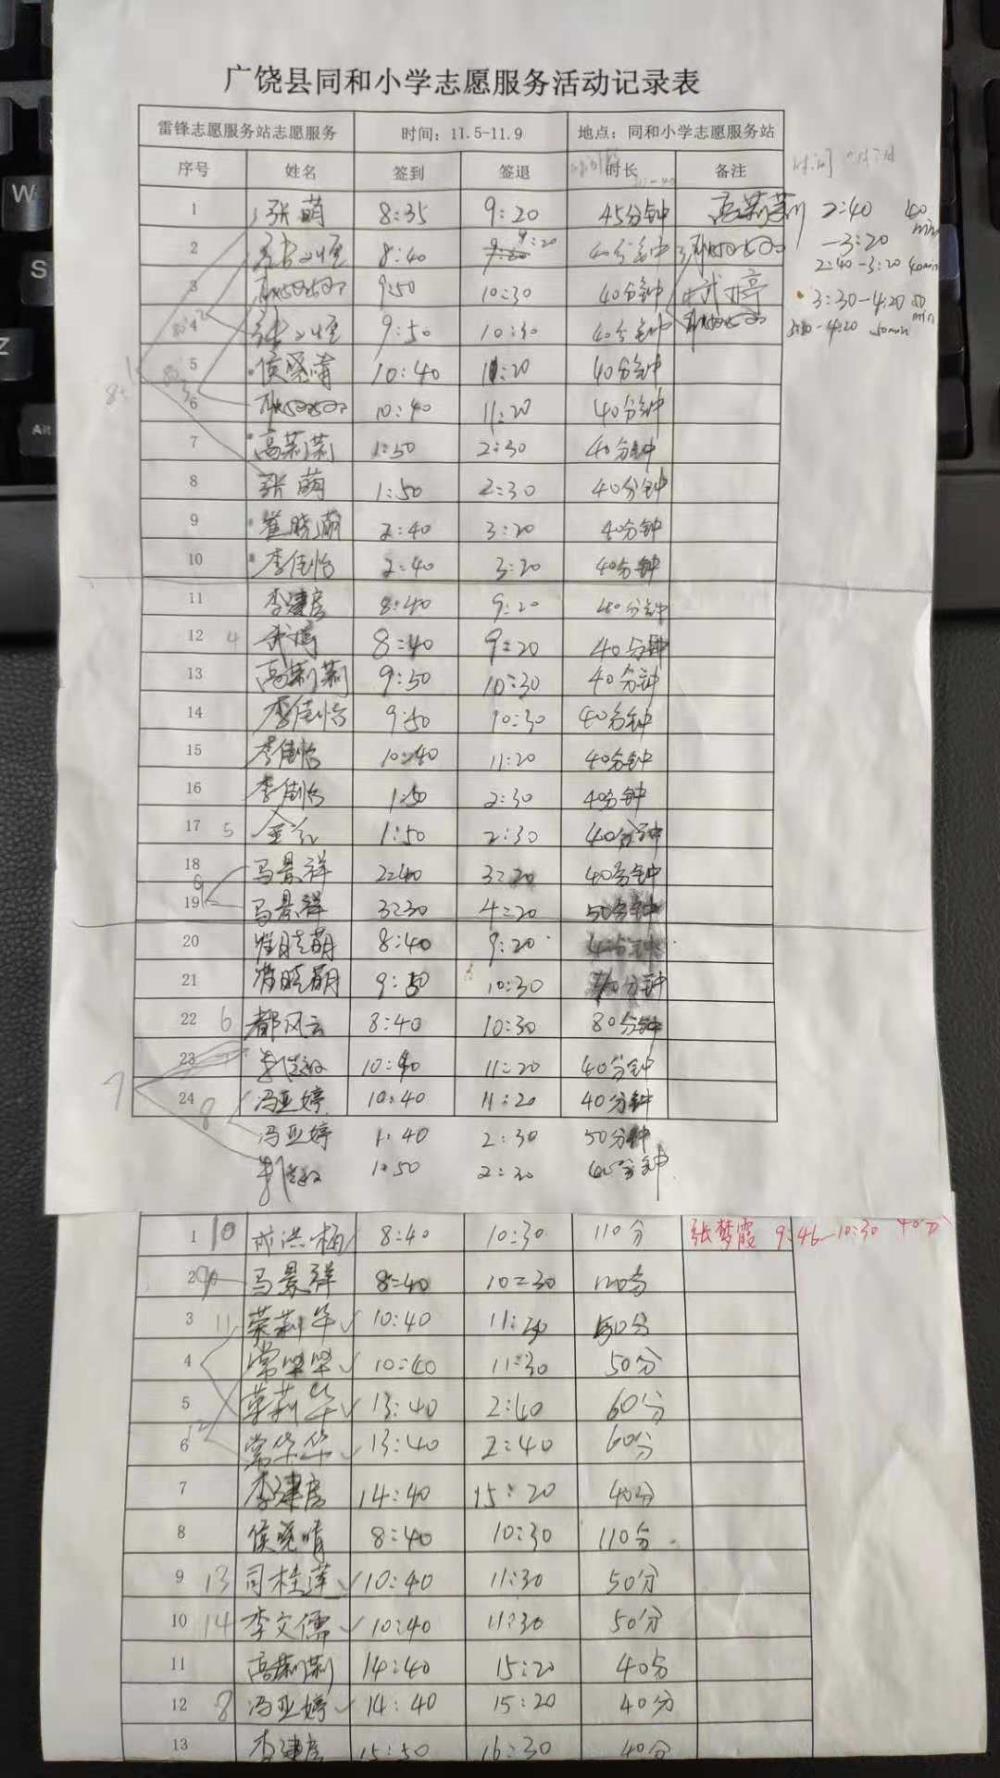 广饶县同和小学志愿服务活动记录表
雷锋志愿服务站志愿服务 时间：11.5-11.9 地点：同和小学志愿服务站
序号 姓名 签到 签退 时长 备注
1 张萌 8:35 9:20 45分钟 高莉莉 2:40 40min
-3:20
2 8:40 9:20 40分钟 2:40-3:20 40min
3 9:50 10:30 40分钟 武婷 3:30-4:20 50min
4 9:50 10:30 40分钟 3:30-4:20 50min
5 侯晓晴 10:40 11:20 40分钟
6 10:40 11:20 40分钟
7 高莉莉 1:50 2:30 40分钟
8 张萌 1:50 2:30 40分钟
9 崔晓萌 2:40 3:20 40分钟
10 李佳怡 2:40 3:20 40分钟
11 李建房 8:40 9:20 40分钟
12 4 武婷 8:40 9:20 40分钟
13 高莉莉 9:50 10:30 40分钟
14 李佳怡 9:50 10:30 40分钟
15 李佳怡 10:40 11:20 40分钟
16 李佳怡 1:50 2:30 40分钟
17 5 1:50 2:30 40分钟
18 马景祥 2:40 3:20 40分钟
19 马景祥 3:30 4:20 50分钟
20 崔晓萌 8:40 9:20
21 崔晓萌 9:50 10:30 40分钟
22 6 都风云 8:40 10:30 80分钟
23 10:40 11:20 40分钟
7
24 8 冯亚婷 10:40 11:20 40分钟
冯亚婷 1:40 2:30 50分钟
1:50 2:30
1 10 8:40 10:30 110分 张梦霞 9:46-10:30
2 9 马景祥 8:40 10:30
3 11 荣莉华 10:40 50分
4 常华华 10:40 11:30 50分
5 荣莉华 13:40 2:40 60分
6 12 常华华 13:40 2:40 60分
7 李建房 14:40 15:20 40分
8 侯晓晴 8:40 10:30 110分
9 13 司桂莲 10:40 11:30 50分
10 14 李文儒 10:40 11:30 50分
11 高莉莉 14:40 15:20 40分
12 8 冯亚婷 14:40 15:20 40分
13 李建房 15:50 16:30 40分